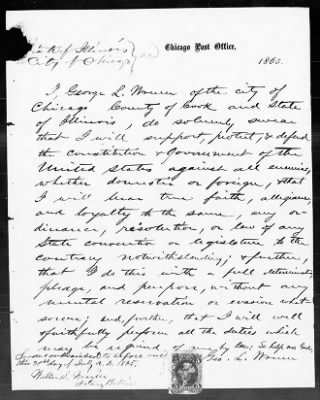 State of Illinois
City of Chicago } ss
Chicago Post Office,
1865.
I, George L. of the city of
Chicago County of Cook and State
of Illinois, do solemnly swear
that I will support, protect, & defend
the Constitution & Government of the
United States against all enemies,
whether domestic or foreign, & that
I will bear true faith, allegiance,
and loyalty to the same, any or-
dinance, resolution, or law of any
State convention or legislature to the
contrary notwithstanding; & further,
that I do this with a full determination,
pledge, and purpose, without any
mental reservation or evasion what
soever; and, further, that I will well
& faithfully perform all the duties which
may be required of me by law; So help me God,
Sworn & subscribed to before me
this day of July A.D. 1865.
Geo. L.
Notary Public